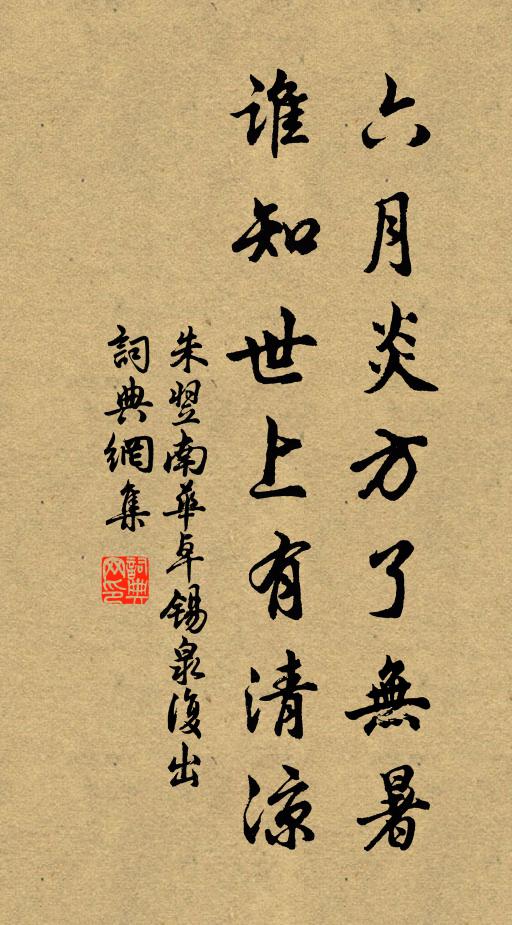 六月炎方了無暑
誰知世上有清涼
朱翌南華卓錫泉復出
詞典網集
詞典
网印